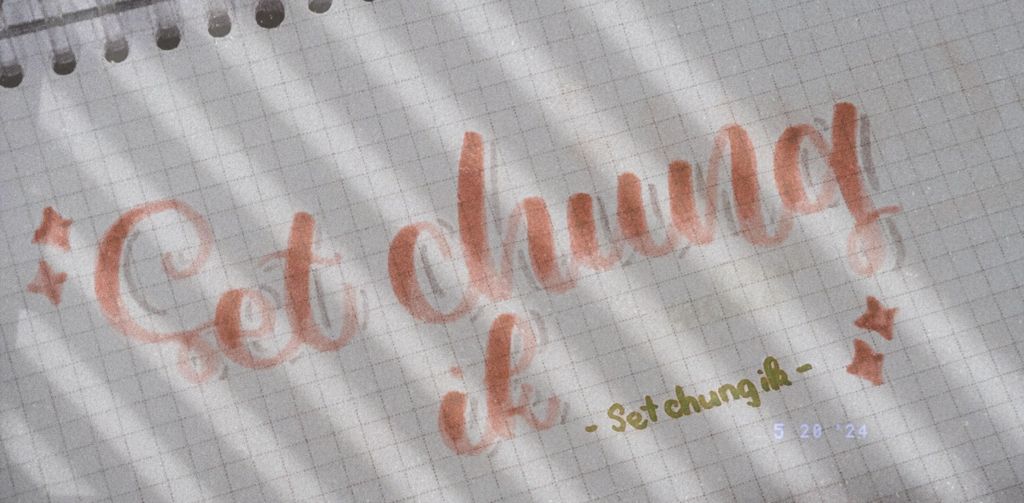 Set chung
ik
- Setchungik -
5 20 '24